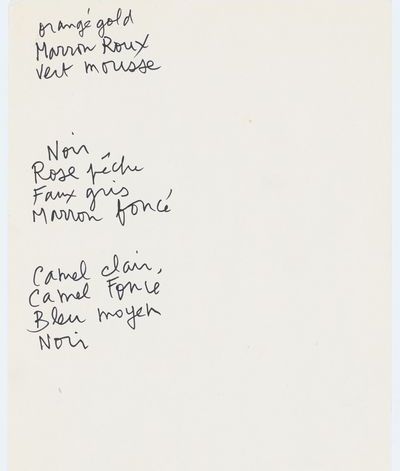 orangé gold
Marron Roux
Vert mousse
Noir
Rose pêche
Faux gris
Marron foncé
Camel clair,
Camel Foncé
Bleu moyen
Noir